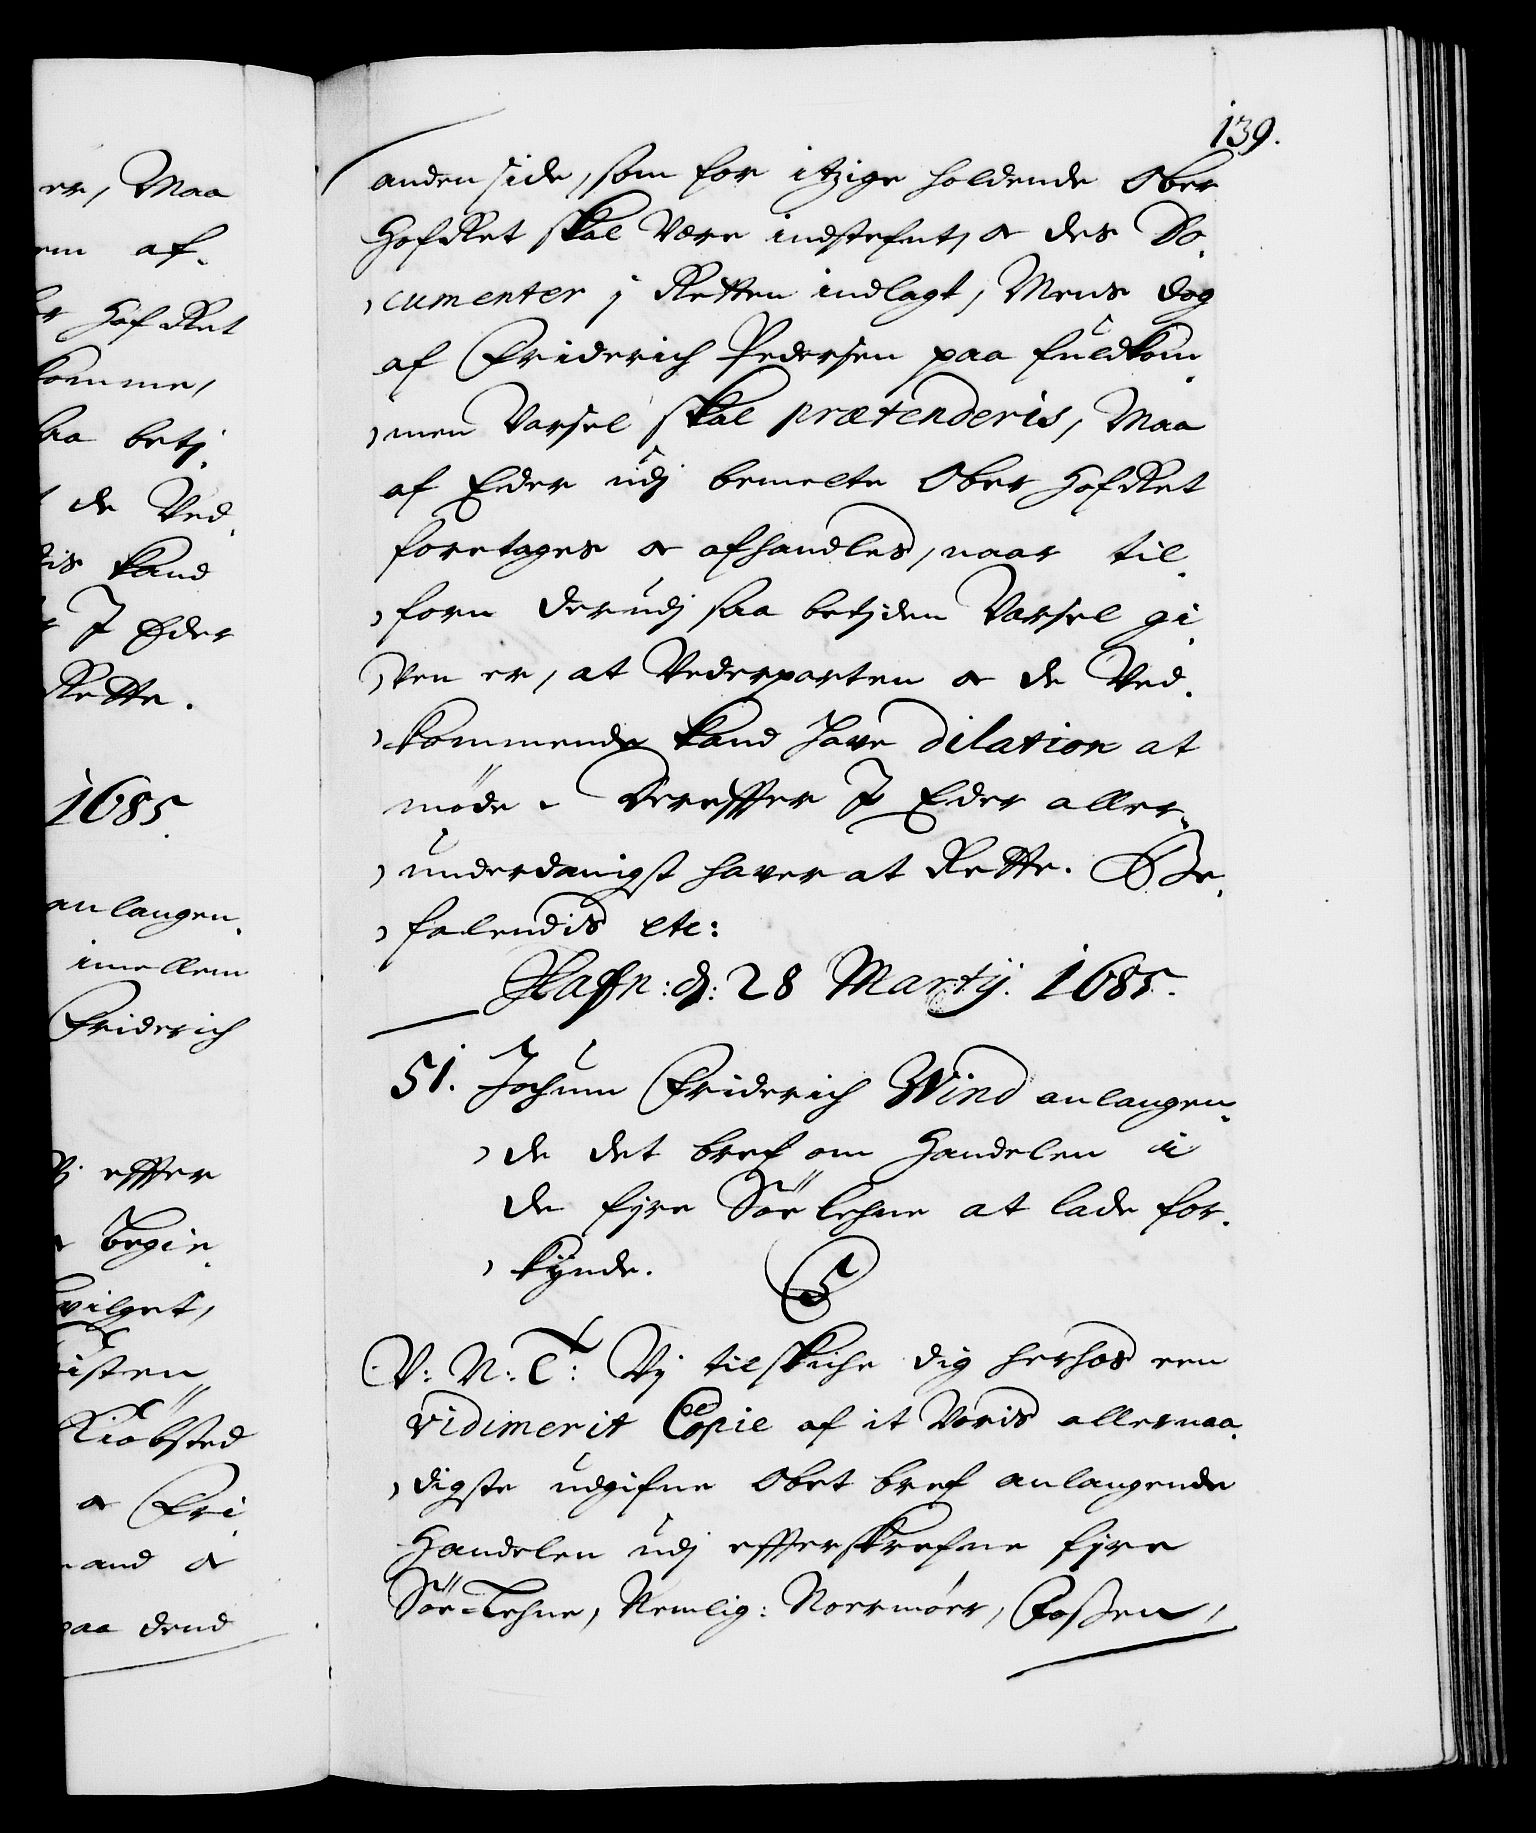 139.
anden side, som for itzige holdende Ober
HofRet skal Være indstefnt, oc des Do¬
cumenter j Retten indlagt, Mens dog
af Friderich Pedersen paa fuldkom¬
men Varsel skal prætenderis, Maa
af Eder udj bemelte Ober HofRet
foretages oc afhandles, naar til¬
forn derudj saa betjden Varsel gi¬
Ven er, at Vederparten oc de Ved¬
kommende kand have dilation at
møde. Derefter I Eder aller¬
underdanigst haver at Rette. Be¬
falendis etc:
Hafn: d: 28 Martij. 1685.
51. Jochum Friderich Wind anlangen¬
de det bref om Handelen i
de fire Söe Lehne at lade for¬
kynde.
C5
V: N: T: Vj tilskiche dig herhos een
vidimerit Copie af it Voris allernaa¬
digste udgifne Obet bref anlangende
Handelen udj efterskrefne fire
Söe-Lehne, Nemlig: Norrmöer, Foßen,
er, Maa
em af¬
HofRet
komme,
saa betj¬
de Ved¬
dis kand
I Eder
Rette.
1685.
anlangen¬
imellem
Friderich
efter
begier¬
vilget,
isten
Kiöbsted
oc Fri¬
mand oc
paa dend